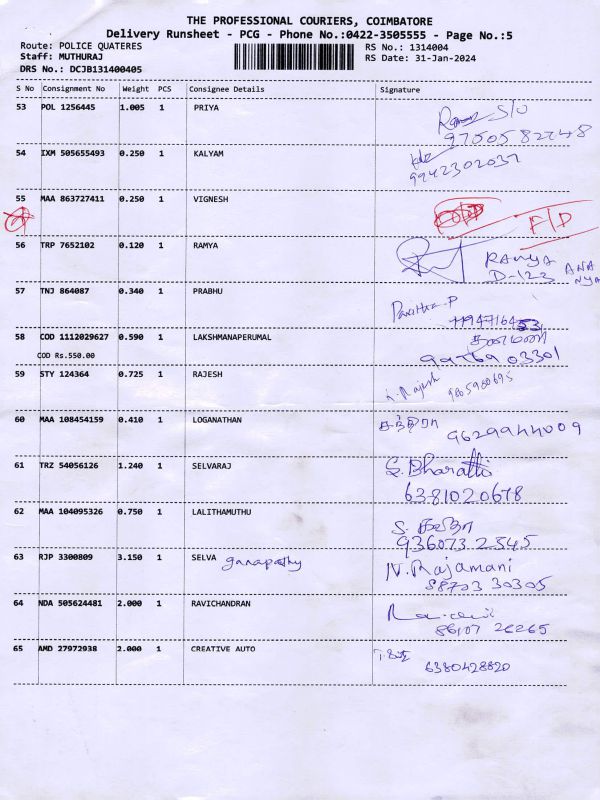 THE PROFESSIONAL COURIERS, COIMBATORE
Delivery Runsheet - PCG - Phone No.:0422-3505555 - Page No.:5
Route: POLICE QUATERES
RS No.: 1314004
Staff: MUTHURAJ
RS Date: 31-Jan-2024
DRS No.: DCJB131400405
S No Consignment No Weight PCS Consignee Details Signature
53 POL 1256445 1.005 1 PRIYA
S/O
97505 82748
54 IXM 505655493 0.250 1 KALYAM
9942302037
55 MAA 863727411 0.250 1 VIGNESH
F/D
56 TRP 7652102 0.120 1 RAMYA
RAMYA
D-123
57 TNJ 864087 0.340 1 PRABHU
Pavithra.P
58 COD 1112029627 0.590 1 LAKSHMANAPERUMAL
COD Rs.550.00
99769 03301
59 STY 124364 0.725 1 RAJESH
Rajesh
9865980695
60 MAA 108454159 0.410 1 LOGANATHAN
9629944009
61 TRZ 54056126 1.240 1 SELVARAJ
S.Bharathi
6381020678
62 MAA 104095326 0.750 1 LALITHAMUTHU
936073 2345
63 RJP 3300809 3.150 1 SELVA ganapathy
N.Rajamani
88703 30305
64 NDA 505624481 2.000 1 RAVICHANDRAN
86107 26265
65 AMD 27972938 2.000 1 CREATIVE AUTO
6380428820